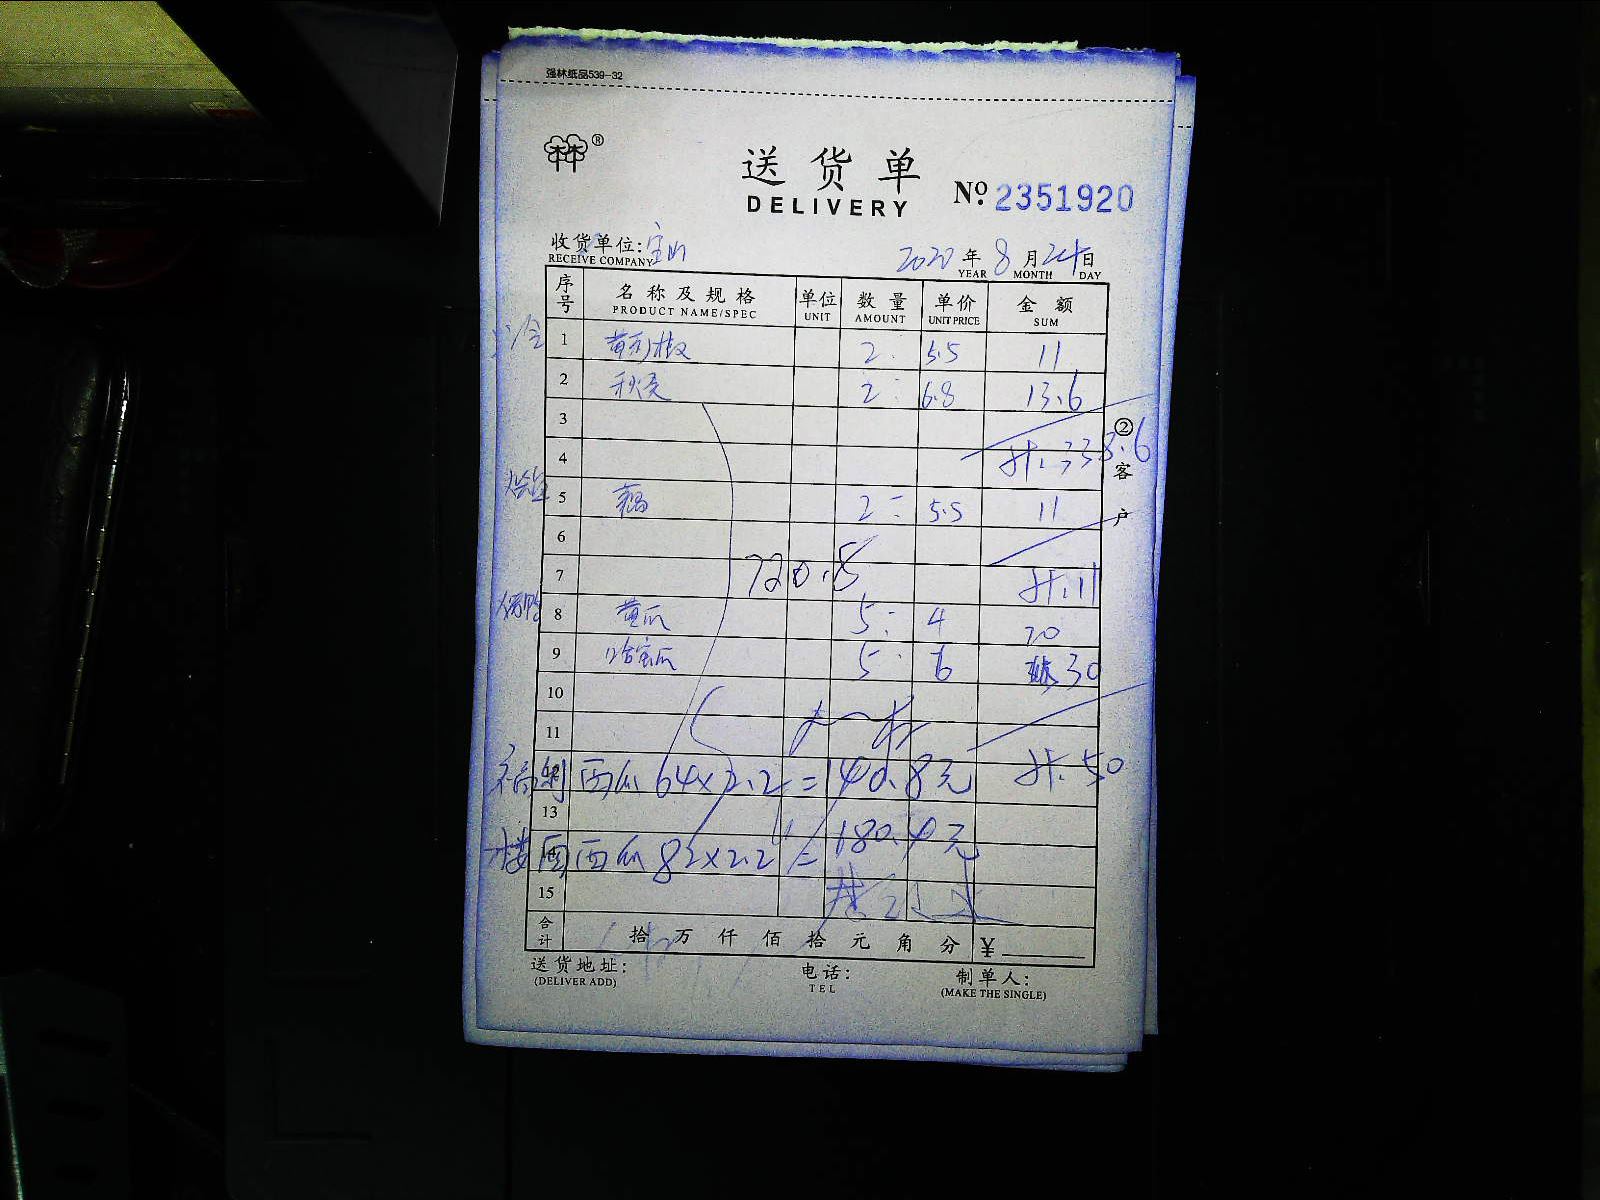 强林纸品539-32
送货单
DELIVERY
№ 2351920
收货单位: 宝山
RECEIVE COMPANY
2020 年 8 月 24 日
YEAR MONTH DAY
序号 名称及规格 单位 数量 单价 金额
PRODUCT NAME/SPEC UNIT AMOUNT UNIT PRICE SUM
1 2 5.5 11
2 秋葵 2 6.8 13.6
3
4 338.6
5 藕 2 5.5 11
6
7 720.8 11
8 黄瓜 5 4 20
9 哈密瓜 5 6 30
10
11
福利 西瓜 64×2.2=140.8元 50
13
楼面 西瓜 82×2.2=180.4元
15
合计 拾 万 仟 佰 拾 元 角 分 ¥
②客户
送货地址: 电话: 制单人:
(DELIVER ADD) TEL (MAKE THE SINGLE)